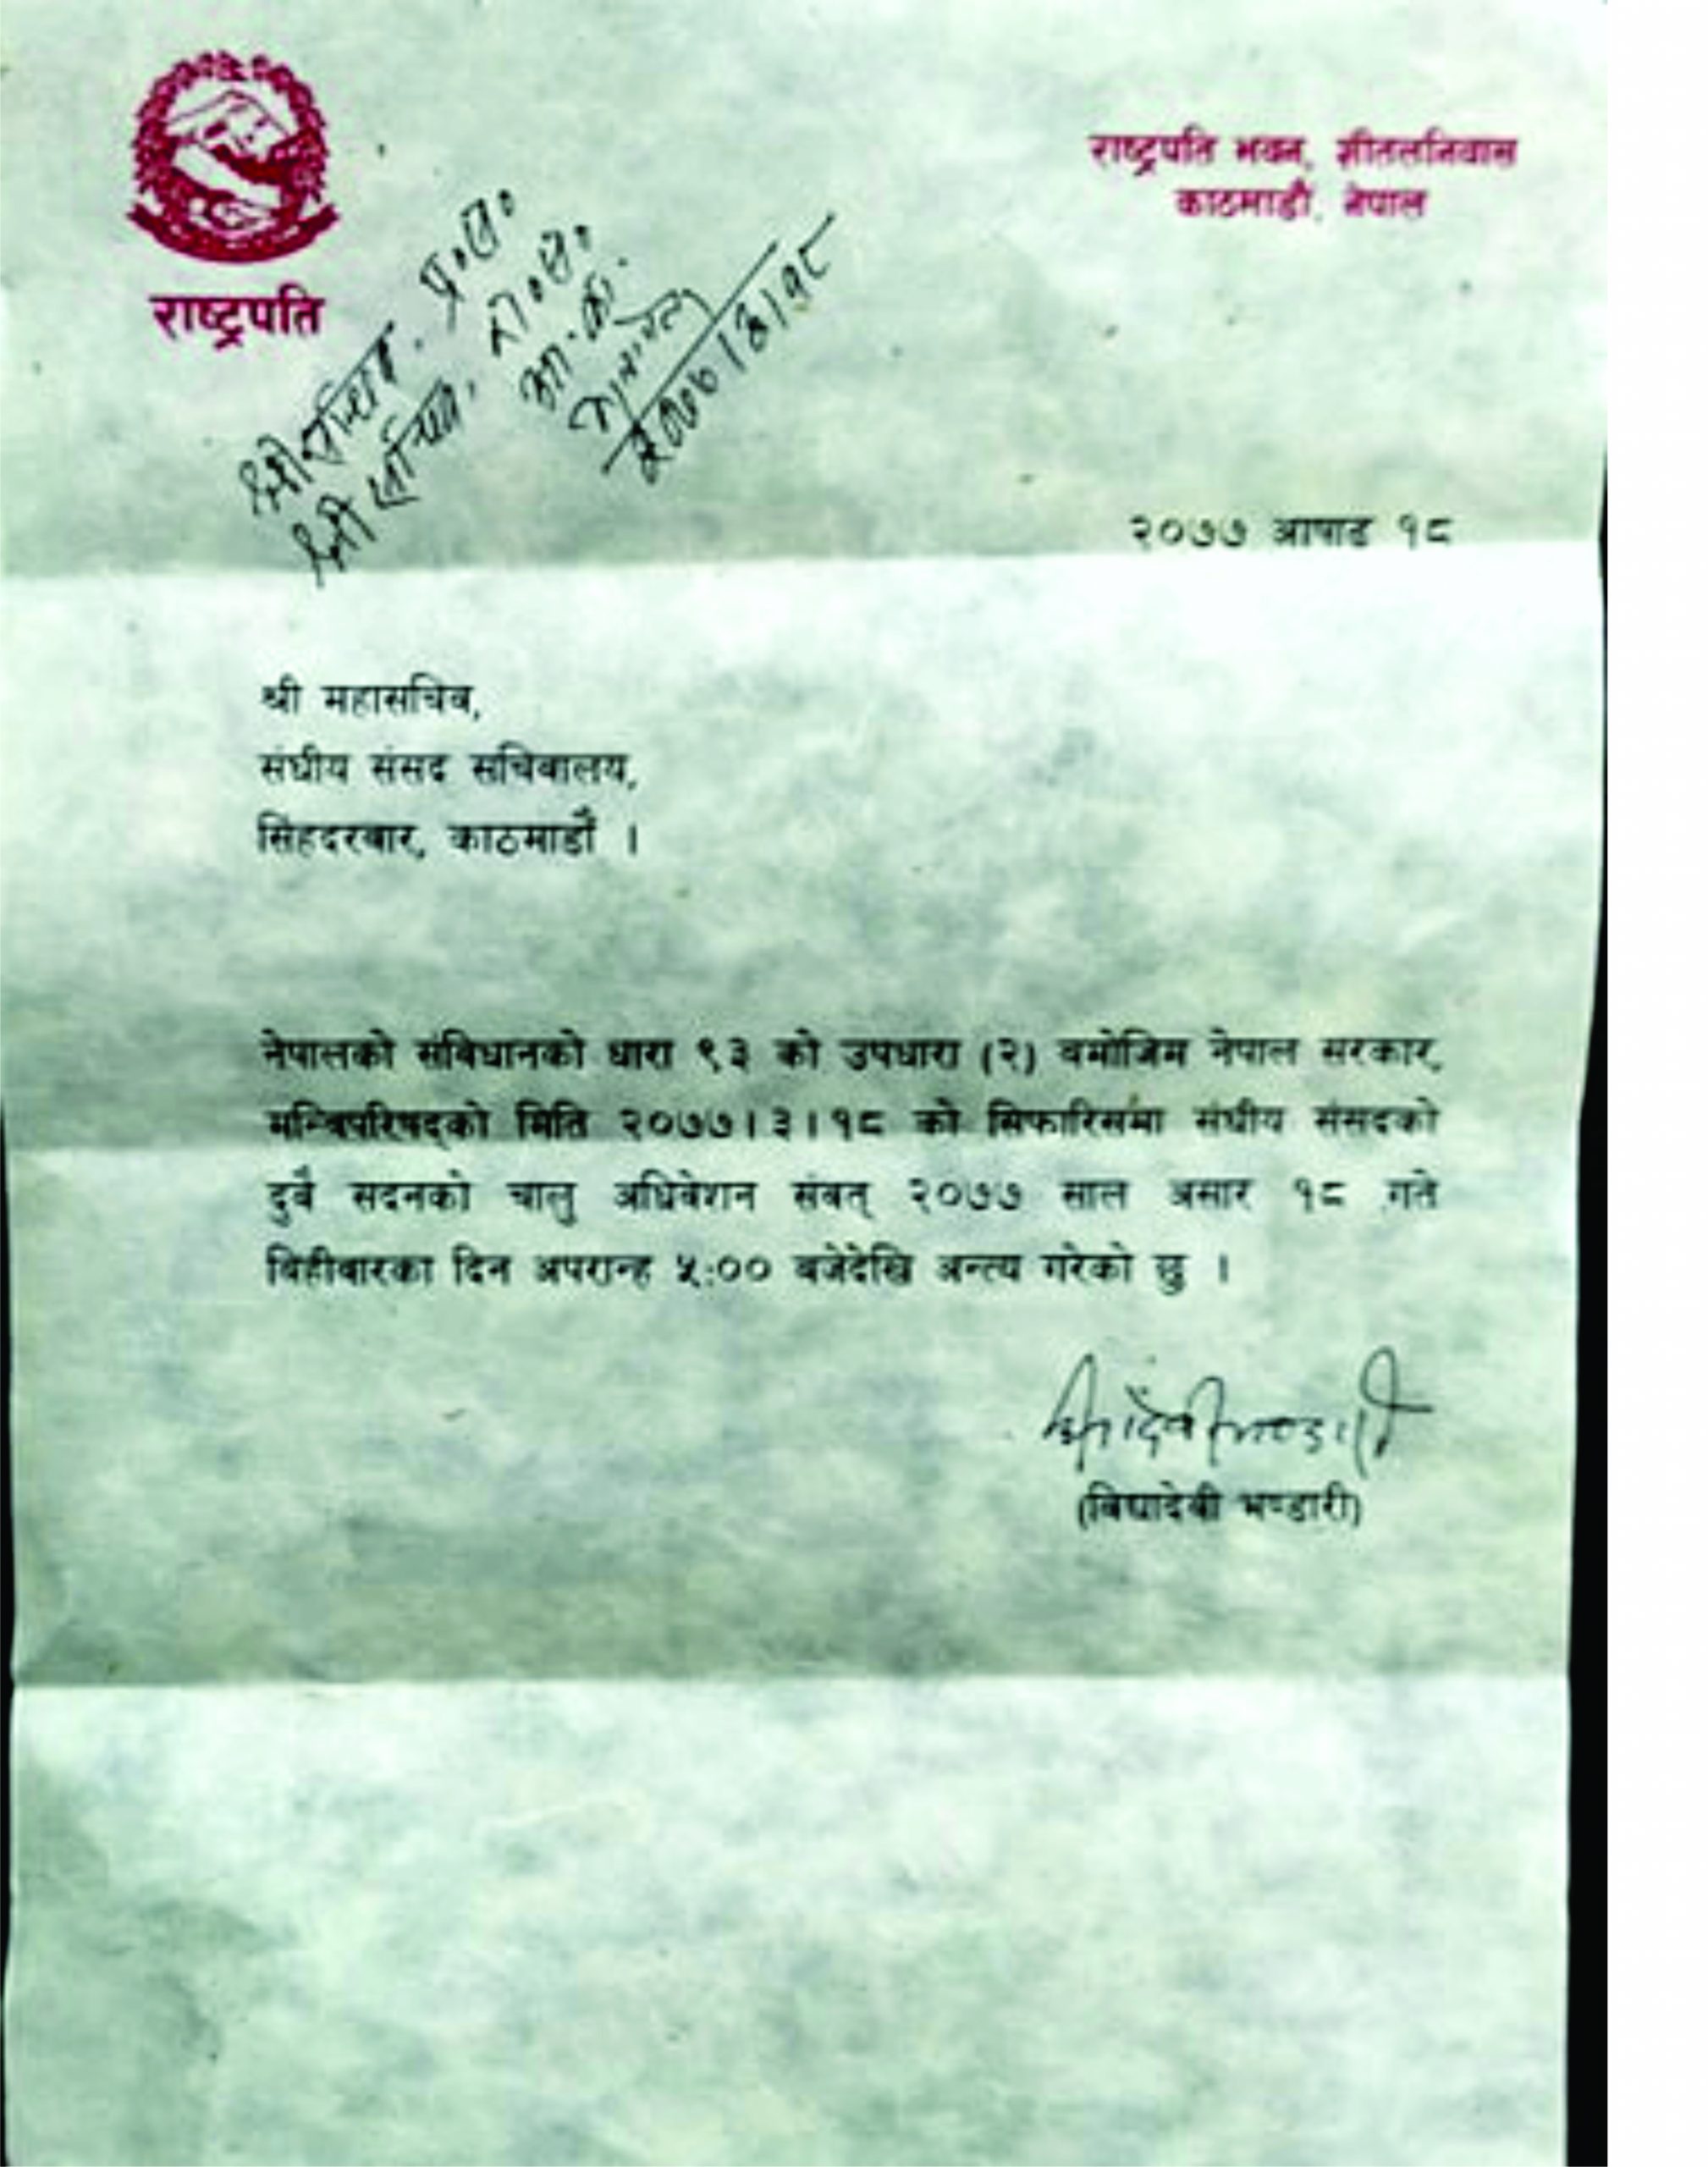 राष्ट्रपति
राष्ट्रपति भवन, शीतलनिवास
काठमाडौं, नेपाल
श्री सचिव, प्र.स.
श्री सचिव, रा.स.
२०७७।३।१८
२०७७ आषाढ १८
श्री महासचिव,
संघीय संसद सचिवालय,
सिंहदरबार, काठमाडौं ।
नेपालको संविधानको धारा ९३ को उपधारा (२) बमोजिम नेपाल सरकार,
मन्त्रिपरिषद्को मिति २०७७।३।१८ को सिफारिसमा संघीय संसदको
दुवै सदनको चालु अधिवेशन संवत् २०७७ साल असार १८ गते
विहीवारका दिन अपरान्ह ५:०० बजेदेखि अन्त्य गरेको छु ।
(विद्यादेवी भण्डारी)